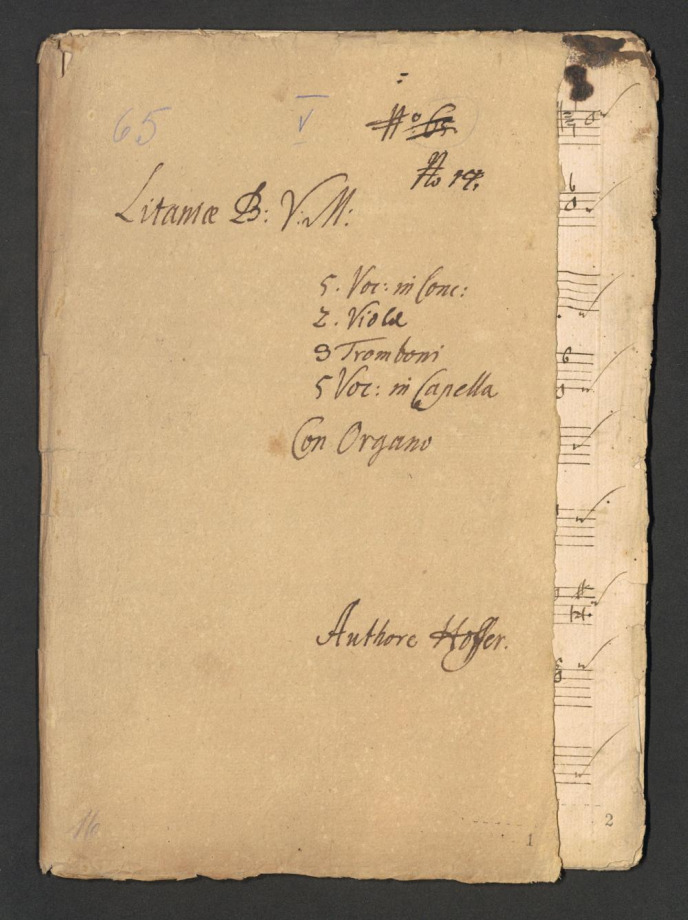 65 V
No 65.
No 17.
Litaniæ B: V: M:
5. Voc: in Conc:
2. Violæ
3 Tromboni
5 Voc: in Capella
Con Organo
Authore Hoffer.
16
1
2